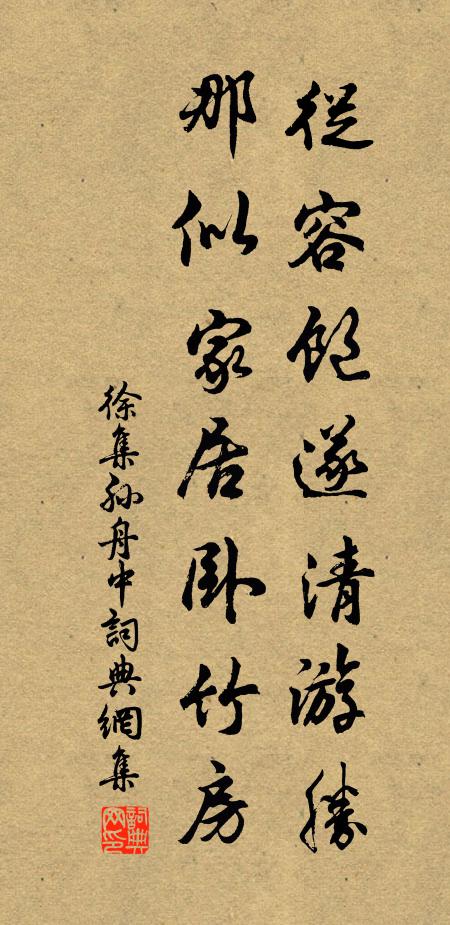 從容饱遂清游勝
那似家居卧竹房
徐集孙舟中詞典網集
詞典网印